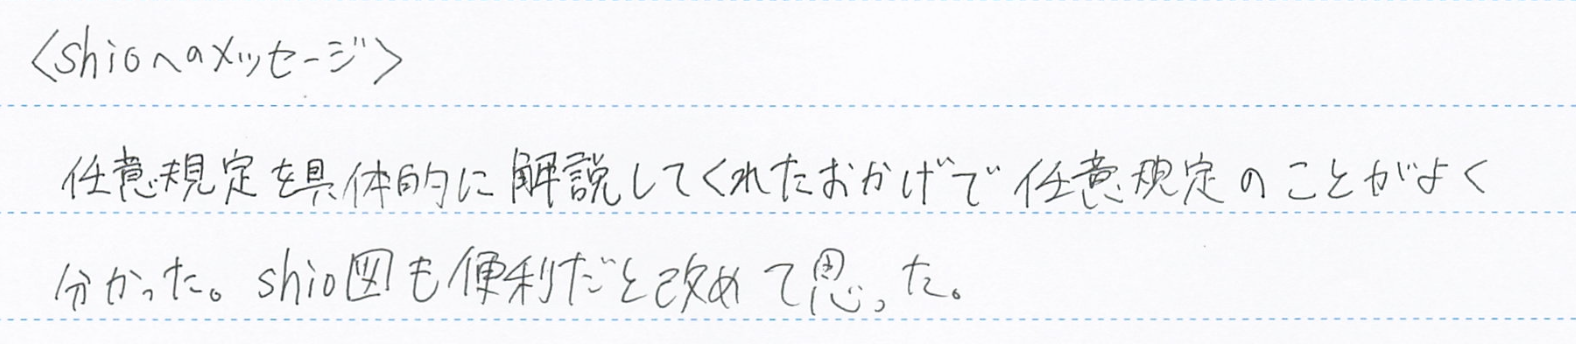 〈shioへのメッセージ〉
任意規定を具体的に解説してくれたおかげで任意規定のことがよく
分かった。shio図も便利だと改めて思った。